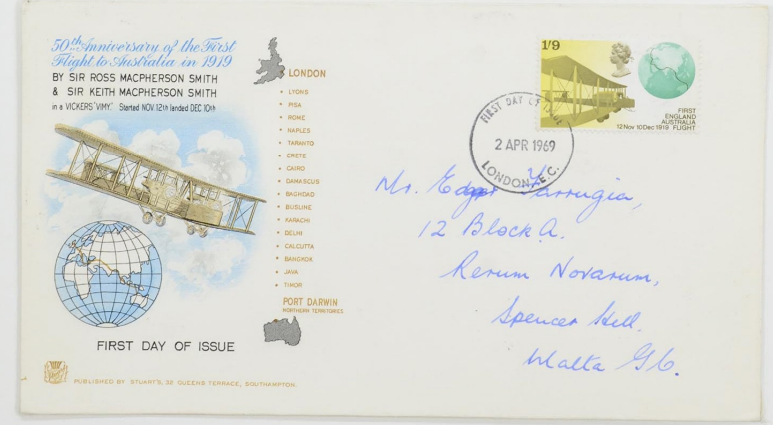 50th Anniversary of the First
Flight to Australia in 1919
BY SIR ROSS MACPHERSON SMITH
& SIR KEITH MACPHERSON SMITH
in a VICKERS "VIMY." Started NOV. 12th landed DEC 10th
LONDON
• LYONS
• PISA
• ROME
• NAPLES
• TARANTO
• CRETE
• CAIRO
• DAMASCUS
• BAGHDAD
• BUSLINE
• KARACHI
• DELHI
• CALCUTTA
• BANGKOK
• JAVA
• TIMOR
PORT DARWIN
NORTHERN TERRITORIES
FIRST DAY OF ISSUE
PUBLISHED BY STUART'S, 32 QUEENS TERRACE, SOUTHAMPTON.
1/9
FIRST
ENGLAND
AUSTRALIA
12 Nov 10 Dec 1919 FLIGHT
FIRST DAY OF ISSUE
2 APR 1969
LONDON E.C.
Mr. Farrugia,
12 Block A.
Rerum Novarum,
Spencer Hill.
Malta G.C.